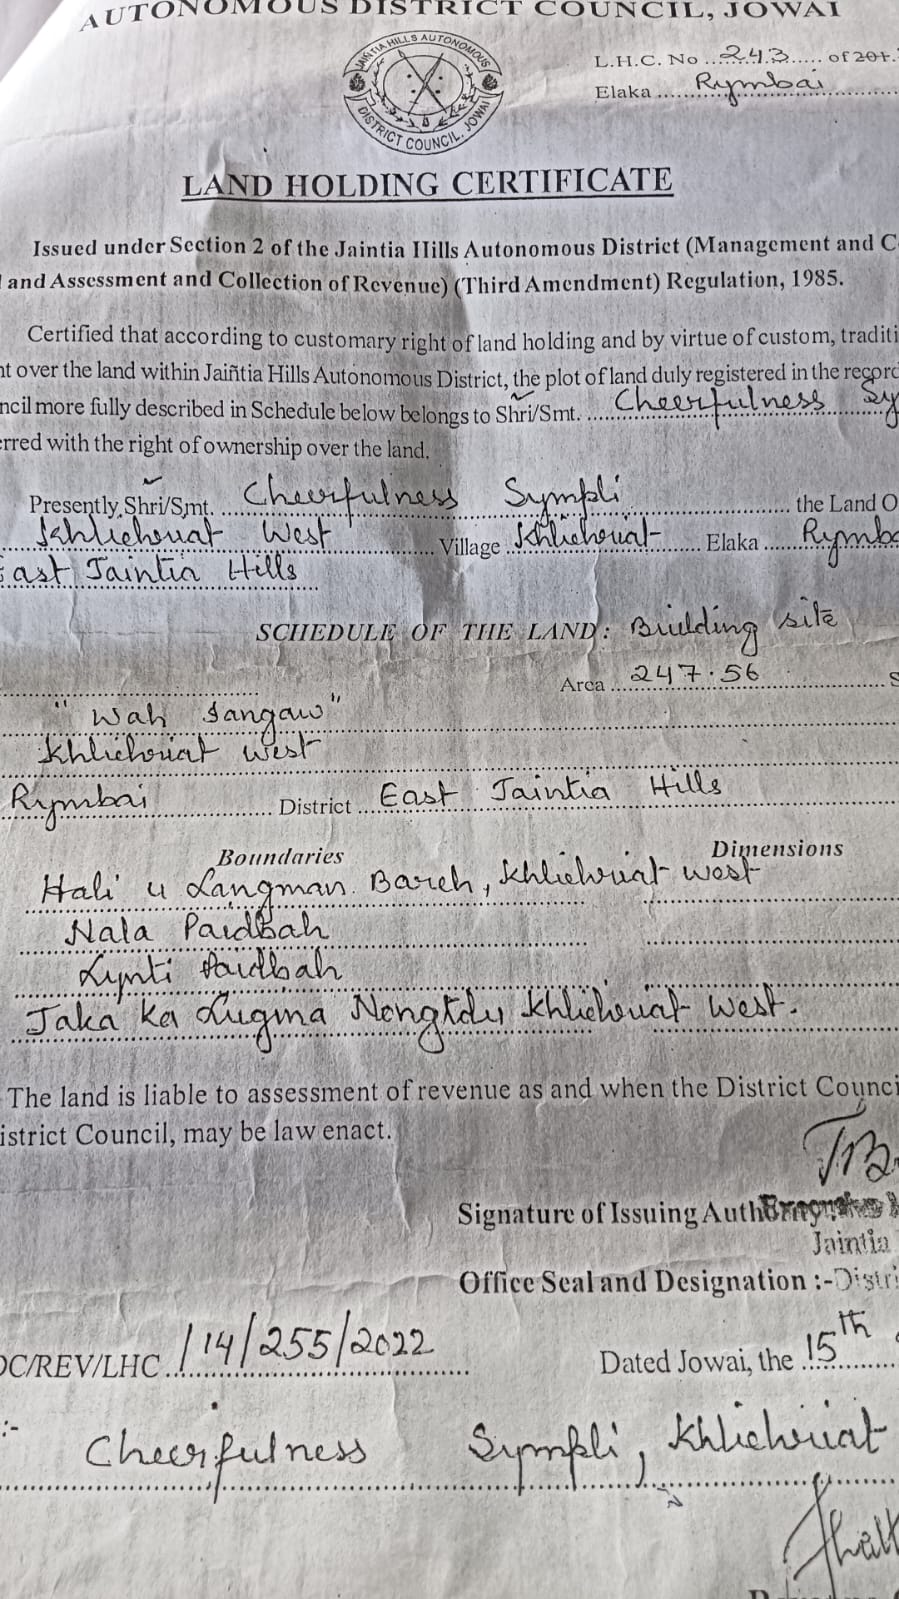 AUTONOMOUS DISTRICT COUNCIL, JOWAI
L.H.C. No ..243..... of 201.
Elaka ..... Rymbai
JAINTIA HILLS AUTONOMOUS
DISTRICT COUNCIL, JOWAI
LAND HOLDING CERTIFICATE
Issued under Section 2 of the Jaintia Hills Autonomous District (Management and C
and Assessment and Collection of Revenue) (Third Amendment) Regulation, 1985.
Certified that according to customary right of land holding and by virtue of custom, traditi
nt over the land within Jaiñtia Hills Autonomous District, the plot of land duly registered in the record
ncil more fully described in Schedule below belongs to Shri/Smt. ..... Cheerfulness Sy
erred with the right of ownership over the land.
Presently Shri/Smt. Cheerfulness Sympli ..... the Land O
Khliehriat West ..... Village Khliehriat ..... Elaka ..... Rymba
East Jaintia Hills
SCHEDULE OF THE LAND: Building site
Area 247.56 ..... S
"Wah Sangaw"
Khliehriat West
Rymbai ..... District East Jaintia Hills
Boundaries Dimensions
Hali u Langman Bareh, Khliehriat West
Nala Paidbah
Lynti Paidbah
Jaka Ka Lugma Nongtdu Khliehriat West.
The land is liable to assessment of revenue as and when the District Counci
istrict Council, may be law enact.
Signature of Issuing Auth
Jaintia
Office Seal and Designation :- Distri
DC/REV/LHC ./14/255/2022
Dated Jowai, the 15th
:-
Cheerfulness Sympli, Khliehriat